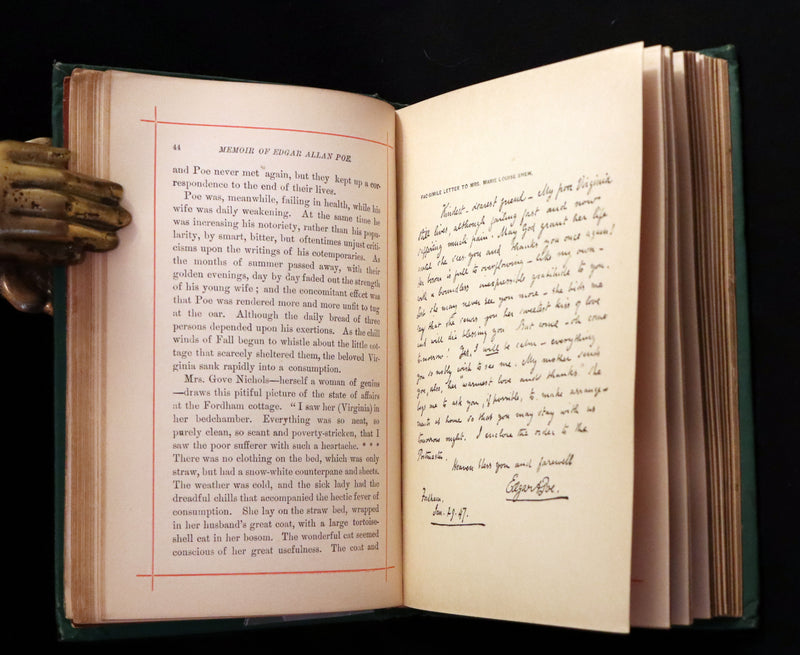 44 MEMOIR OF EDGAR ALLAN POE
and Poe never met again, but they kept up a cor-
respondence to the end of their lives.
Poe was, meanwhile, failing in health, while his
wife was daily weakening. At the same time he
was increasing his notoriety, rather than his popu-
larity, by smart, bitter, but oftentimes unjust criti-
cisms upon the writings of his cotemporaries. As
the months of summer passed away, with their
golden evenings, day by day faded out the strength
of his young wife; and the concomitant effect was
that Poe was rendered more and more unfit to tug
at the oar. Although the daily bread of three
persons depended upon his exertions. As the chill
winds of Fall begun to whistle about the little cot-
tage that scarcely sheltered them, the beloved Vir-
ginia sank rapidly into a consumption.
Mrs. Gove Nichols—herself a woman of genius
—draws this pitiful picture of the state of affairs
at the Fordham cottage. "I saw her (Virginia) in
her bedchamber. Everything was so neat, so
purely clean, so scant and poverty-stricken, that I
saw the poor sufferer with such a heartache. * * *
There was no clothing on the bed, which was only
straw, but had a snow-white counterpane and sheets.
The weather was cold, and the sick lady had the
dreadful chills that accompanied the hectic fever of
consumption. She lay on the straw bed, wrapped
in her husband's great coat, with a large tortoise-
shell cat in her bosom. The wonderful cat seemed
conscious of her great usefulness. The coat and
FAC-SIMILE LETTER TO MRS. MARIE LOUISE SHEW.
Kindest, dearest friend – My poor Virginia
still lives, although failing fast and now
suffering much pain. May God grant her life
until she sees you and thanks you once again!
Her bosom is full to overflowing – like my own –
with a boundless – inexpressible gratitude to you.
Lest she may never see you more – she bids me
say that she sends you her sweetest kiss of love
and will die blessing you. But come – oh come
tomorrow! Yes, I will be calm – everything
you so nobly wish to see me. My mother sends
you, also, her "warmest love and thanks." She
begs me to ask you, if possible, to make arrange-
ments at home so that you may stay with us
tomorrow night. I enclose the order to the
Postmaster.
Heaven bless you and farewell
Edgar A Poe.
Fordham,
Jan. 29. 47.